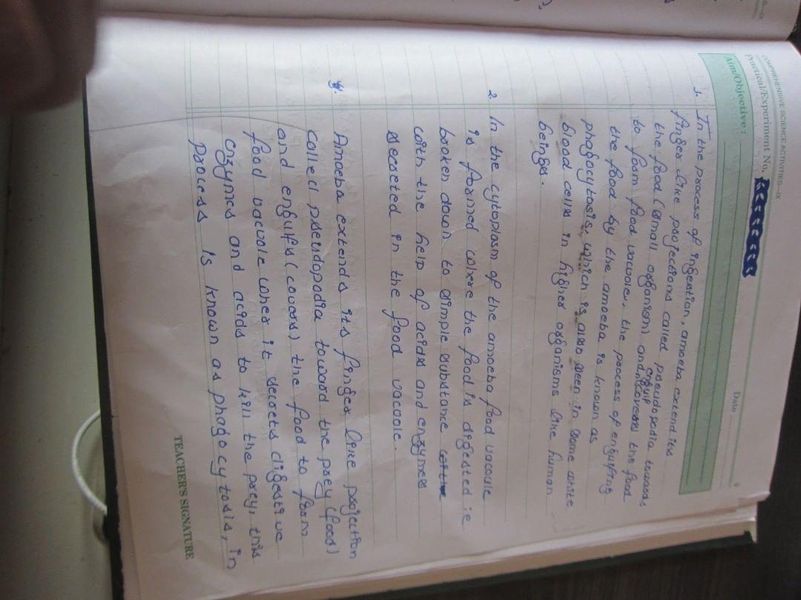 COMPREHENSIVE SCIENCE ACTIVITIES-IX
Practical/Experiment No.
Date
Aim/Objective :
1. In the process of ingestion, amoeba extend its
finger like projections called pseudopodia towards
the food (small organism) and engulf covers the food
to form food vacuole, the process of engulfing
the food by the amoeba is known as
phagocytosis, which is also seen in some white
blood cells in higher organisms like human
beings.
2. In the cytoplasm of the amoeba food vacuole
is formed where the food is digested ie
broken down to simple substance
with the help of acids and enzymes
secreted in the food vacuole.
Amoeba extends its finger like projection
called pseudopodia toward the prey (food)
and engulfs (covers) the food to form
food vacuole when it secrets digestive
enzymes and acids to kill the prey, this
process is known as phagocytosis, in
TEACHER'S SIGNATURE